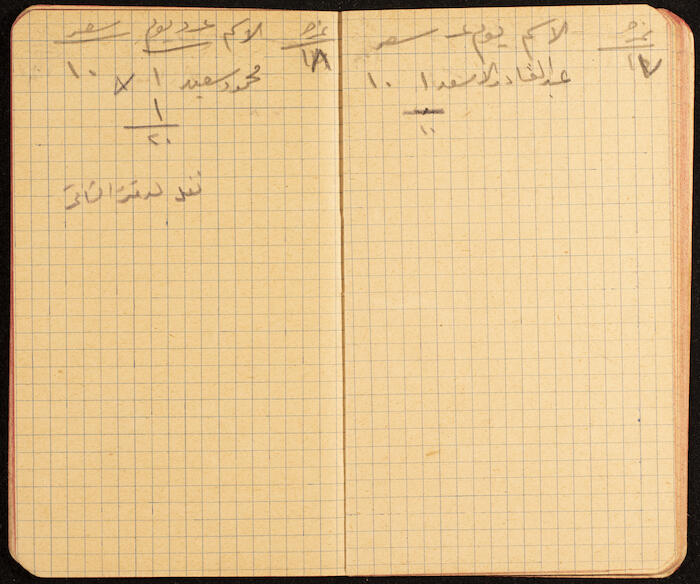 نمرة الاسم يوم عدد سعر
١٧ عبد القادر الاسعد ١ ١٠
١٠
نمرة الاسم عدد يوم سعر
١٨ محمود سعيد ١ ١٠
١
٢٠
نقل لدفتر الثاني